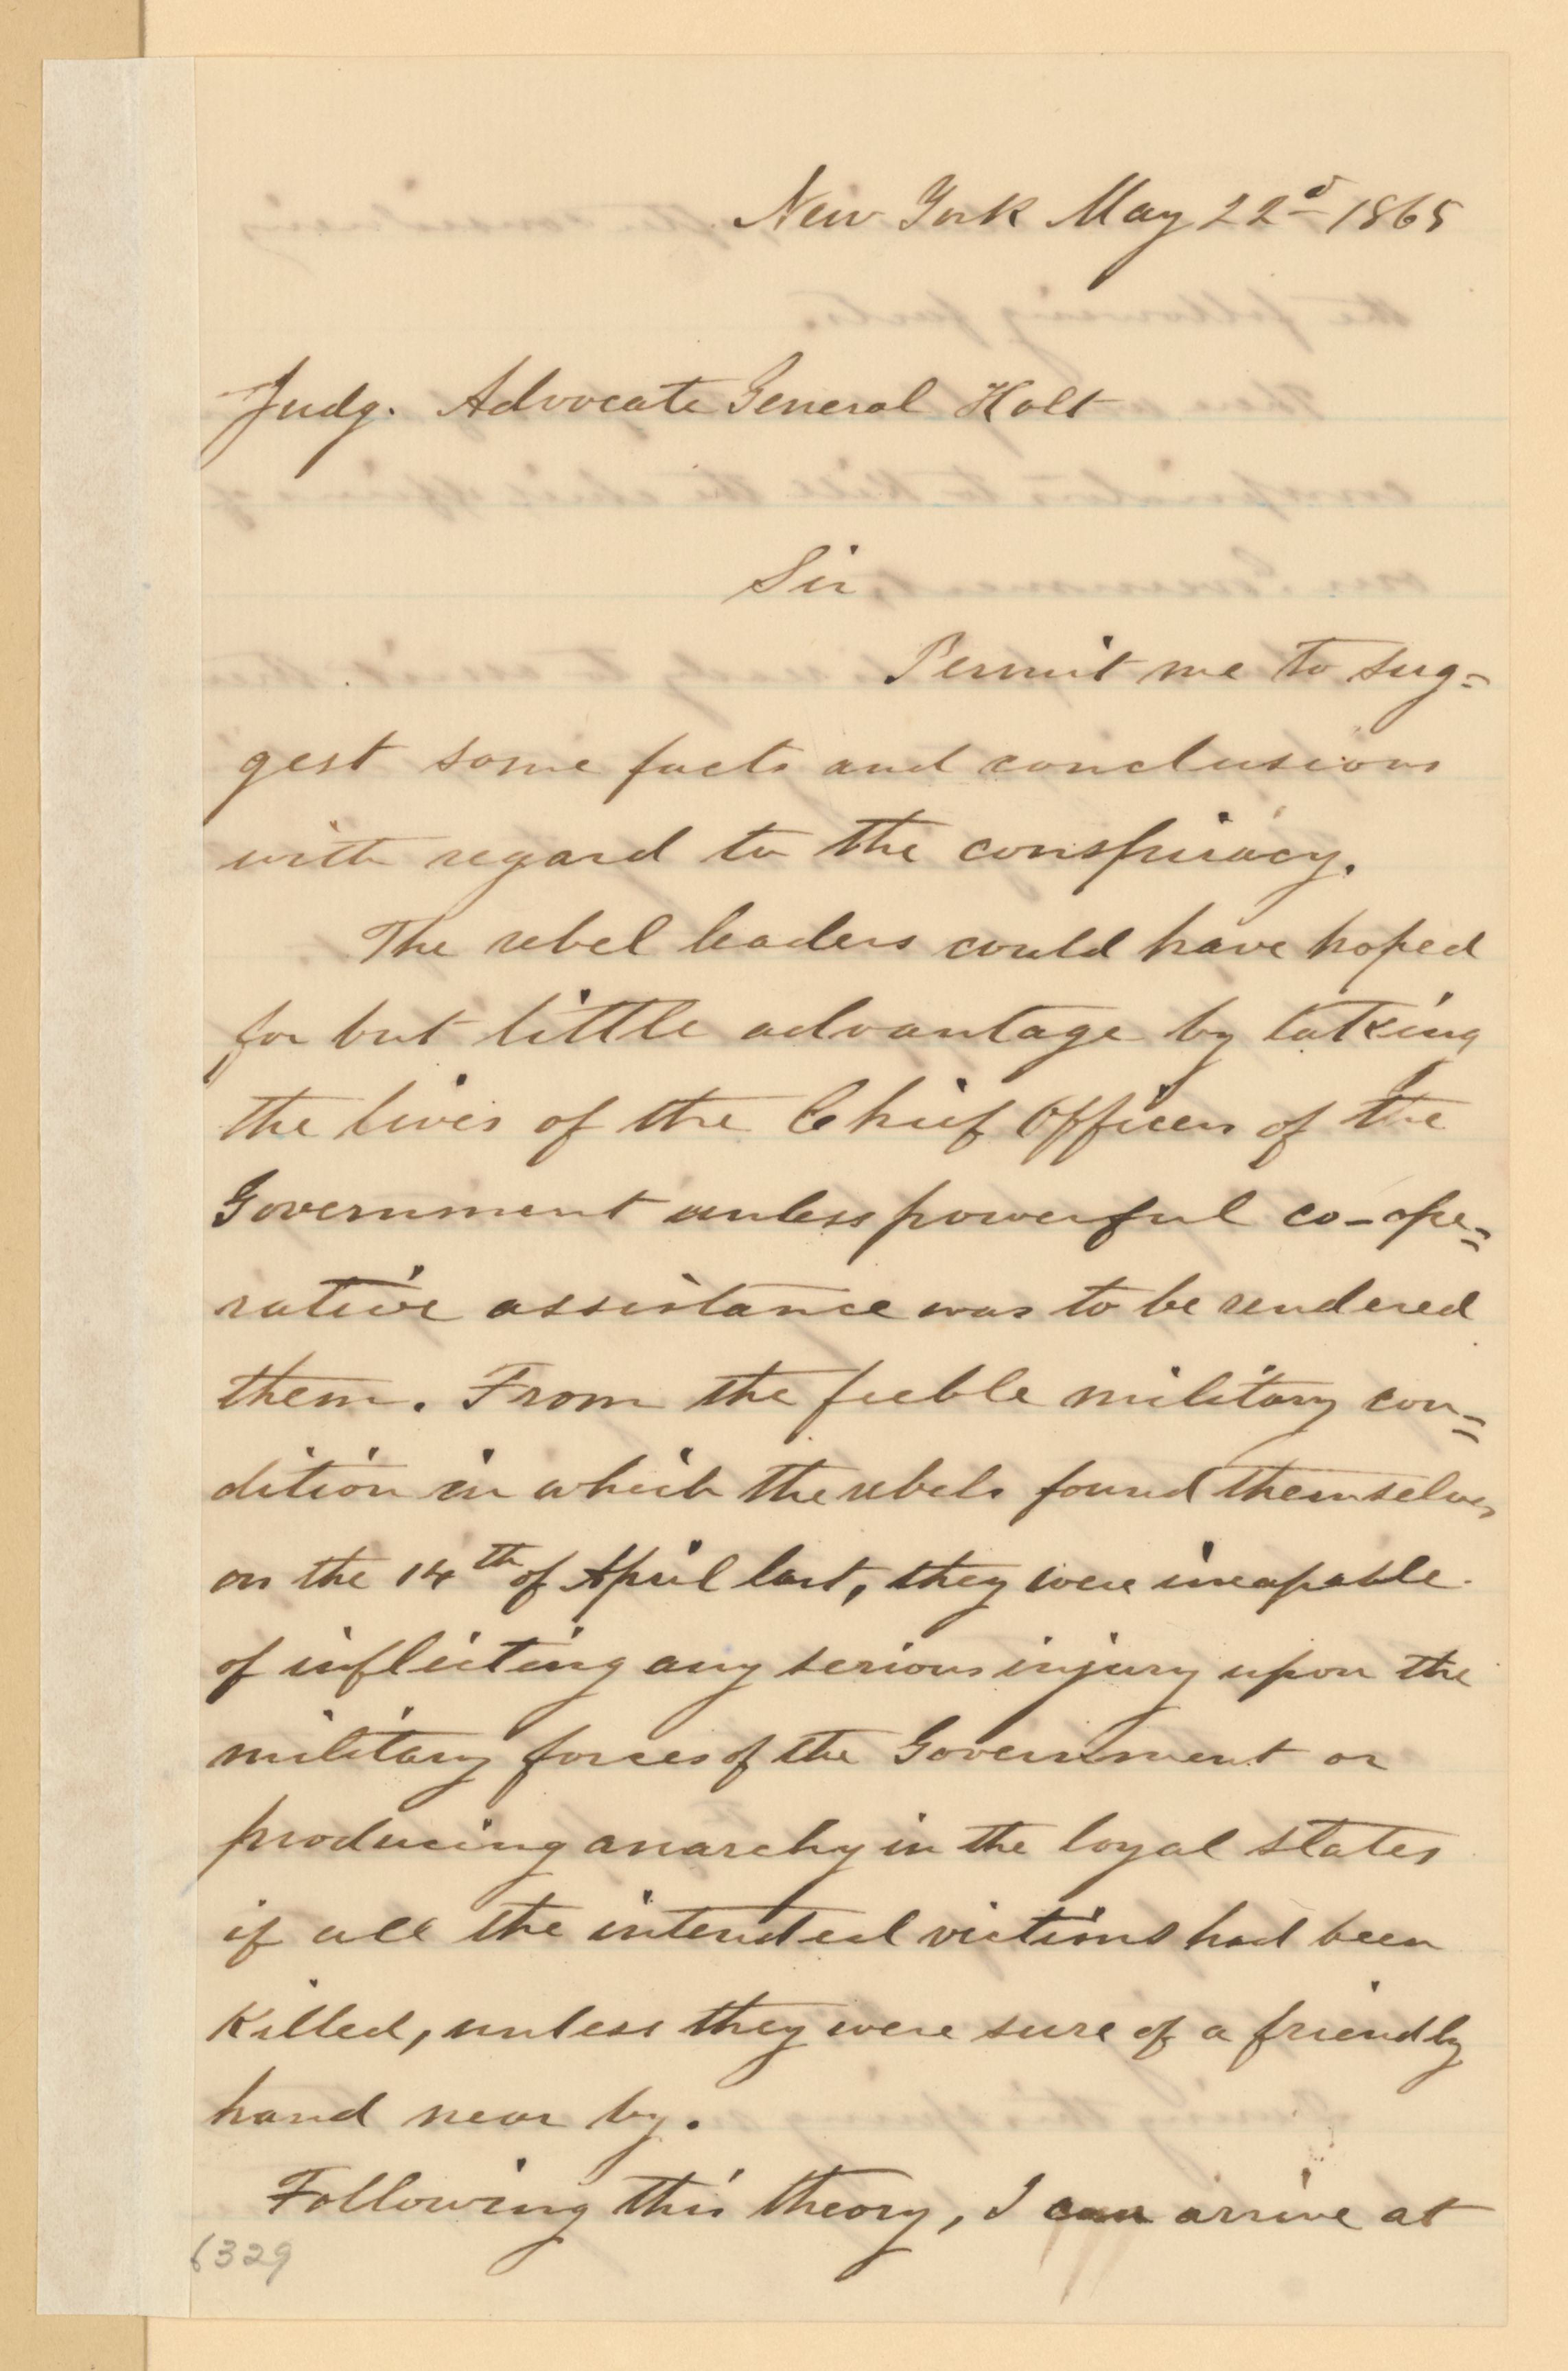 New York May 22d 1865
Judg. Advocate General Holt
Sir
Permit me to sug=
gest some facts and conclusions
with regard to the conspiracy.
The rebel leaders could have hoped
for but little advantage by taking
the lives of the Chief Officers of the
Government unless powerful co-ope=
rative assistance was to be rendered
them. From the feeble military con=
dition in which the rebels found themselves
on the 14th of April last, they were incapable
of inflicting any serious injury upon the
military forces of the Government or
producing anarchy in the loyal states
if all the intended victims had been
killed, unless they were sure of a friendly
hand near by.
Following this theory, I can arrive at
6329